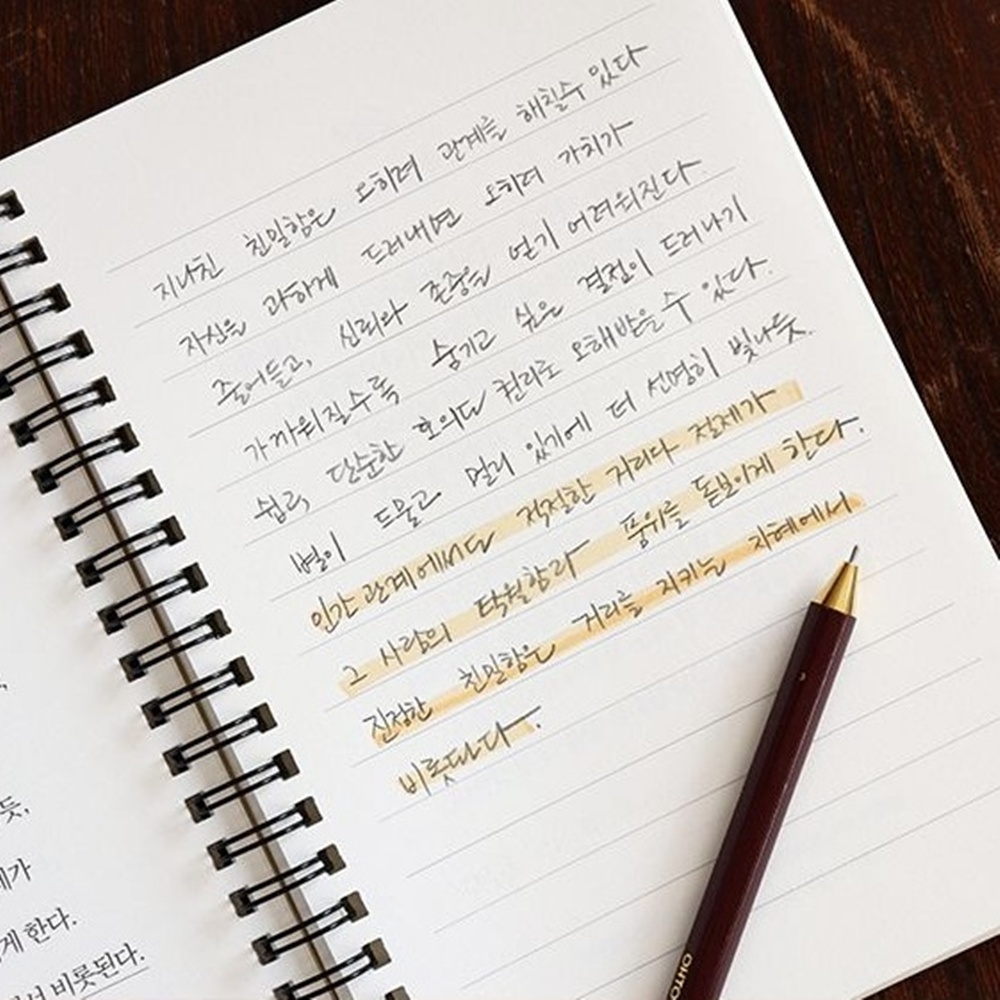 지나친 친밀함은 오히려 관계를 해칠수 있다
자신을 과하게 드러내면 오히려 가치가
줄어들고, 신뢰와 존중을 얻기 어려워진다.
가까워질수록 숨기고 싶은 결점이 드러나기
쉽고, 단순한 호의도 권리로 오해받을 수 있다.
별이 드물고 멀리 있기에 더 선명히 빛나듯,
인간 관계에서도 적절한 거리와 절제가
그 사람의 탁월함과 품위를 돋보이게 한다.
진정한 친밀함은 거리를 지키는 지혜에서
비롯된다.
듯,
게 한다.
서 비롯된다.
OHTO